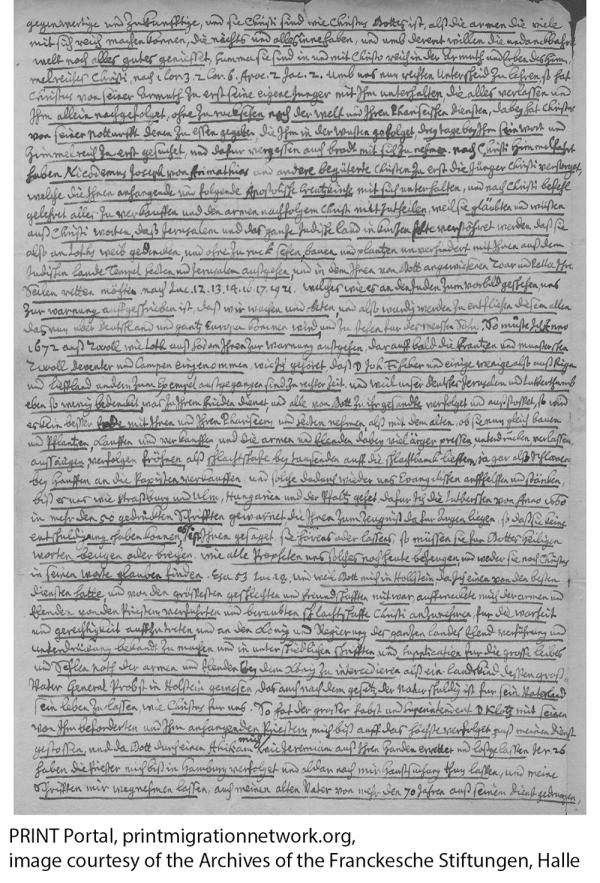 gegenwertige und Zukunfftige, und sie Christi sind wie Christus Gottes ist, alß die armen die viele
mit sich reich machen können, die nichts und alles inne haben, und umb derent willen die undanckbahre
welt noch alles gutes genüsset,
Christus von seiner Armuth Zu erst seine eigene Junger mit Ihm unterhalten die alles verlassen und
Ihm allein nachgefolget, ohne Zurucksehen nach der welt und Ihren Phariseischen diensten, dabey hat Christus
von seiner Notturfft denen Zu essen gegeben die Ihm in der wusten gefolget, drey tage bey Ihm sein wort und
Himmelreich Zu erst gesuchet, und dafur vergessen auch brodt mit sich Zu nehmen, nach Christi Himmelfahrt
haben Nicodemus Joseph von Arimathia und andere begüterte Christen Zu erst die Jünger Christi versorget,
welche die Ihnen anhangende und folgende Apostolische mit sich unterhalten, und nach Christi befehl
gelehret alles Zu verkauffen und den armen nachfolgern Christi mitzutheilen, weil sie gläubten und wusten
auß Christi worten, daß Jerusalem und das gantze Judische land in kurtzen solte verstöhret werden daß sie
alß auß Loths weib gedencken, und ohne Zuruck sehen, bauen und plantzen unverhindert mit Ihnen auß dem
Judischen lande Tempel und Jerusalem außgehen, und in dem Ihnen von Gott angewiesenen Zoar und Pella Ihre
Seelen retten möchten nach Luc. 12. 13. 14. 16. 17. 21. welches wie es an den Juden Zum vorbild geschehen uns
Zur warnung auffgeschrieben ist, daß wir wachen und beten und alß wurdig werden Zu entfliehen diesem allen
das nun uber Deutschland und gantz Europa kommen wird, und Zu stehen fur des menschen Sohn. So muste Ich Anno
1672 auß Zwoll wie Loth auß Sodom Ihnen Zur warnung außgehen, darauff bald die Frantzen und munstersche
Zwoll Deventer und Campen eingenommen, wie Ihr gehöret, daß D Joh. Fischer und einige wenige alß auß Riga
und Lieffland andern Zum Exempel außgegangen sind Zu rechter Zeit, und weil unser deutsches Jerusalem und Lutherthumb
eben so wenig bedencket was Zu Ihren frieden dienet, und alle von Gott Zu ihr gesandte verfolget und außstosset, so wird
es kein besser Ende mit Ihnen und Ihren Phariseern und nehmen alß mit den alten, ob sie nun gleich bauen
und Pflantzen, kauffen und verkauffen und die armen und Elenden dabey viel ärger pressen, unterdrucken verlassen
außsaugen verfolgen alß schlachtschaffe bey tausenden auff die schlachtbanck lieffern, ja gar alß Sclaven
bey hauffen an die Papisten verkauffen, und solche dadurch wieder uns Evangelischen anhetzen und stärcken,
biß es uns wie Straßburg und Ulm, Hungarien und der Pfaltz gehet dafur Ich die Lutherschen von Anno 1660
in mehr den 50 gedruckten Schrifften gewarnet die Ihnen Zum Zeugniß da fur Augen liegen, so daß sie keine
entschuldigung haben können, Ihnen gesaget sie hören es oder lassens, so müssen sie fur Gottes heiligen
worten beugen oder brechen, wie alle Propheten uns solches noch heute bezeugen, und weder sie noch Christus
in seinem worte glauben finden. Esa. 53 Luc. 18. und weil Gott mich in Holstein da Ich einen von den besten
diensten hatte, und von den grössesten geschlechten und freundschafften mit war, aufferweckte mich der armen und
Elenden von den Priestern verfuhrten und beraubten schlachtschaffe Christi anZunehmen, fur die warheit
und gerechtigkeit auffZutreten und an den König und Regierung des gantzen landes Elend verfuhrung und
unterdruckung bekand Zu machen und in unterschiedlichen schrifften und Supplication fur die grosse leibes
und Seelen noth der armen und Elenden bey dem König Zu intercediren alß ein landskind dessen groß
Vater General Probst in Holstein gewesen, das auch nach dem gesetz der Natur schuldig ist fur sein Vaterland
sein leben Zu lassen, wie Christus fur uns. So hat der grosse Pabst und Superintendent D Klotz mit seinen
von Ihm beforderten und Ihm anhangenden Priestern mich biß auff das höchste verfolget auß meinem dienst
gestossen, und da Gott durch einen mich wie Jeremiam auß Ihren Handen errettet und loßgelassen
haben die Priester mich biß in Hamburg verfolget und alda nach mir haußsuchung thun lassen, und meine
Schrifften mir wegnehmen lassen, auch meinen alten Vater von mehr den 70 Jahren auß seinem dienst gedrungen,
PRINT Portal, printmigrationnetwork.org,
image courtesy of the Archives of the Franckesche Stiftungen, Halle